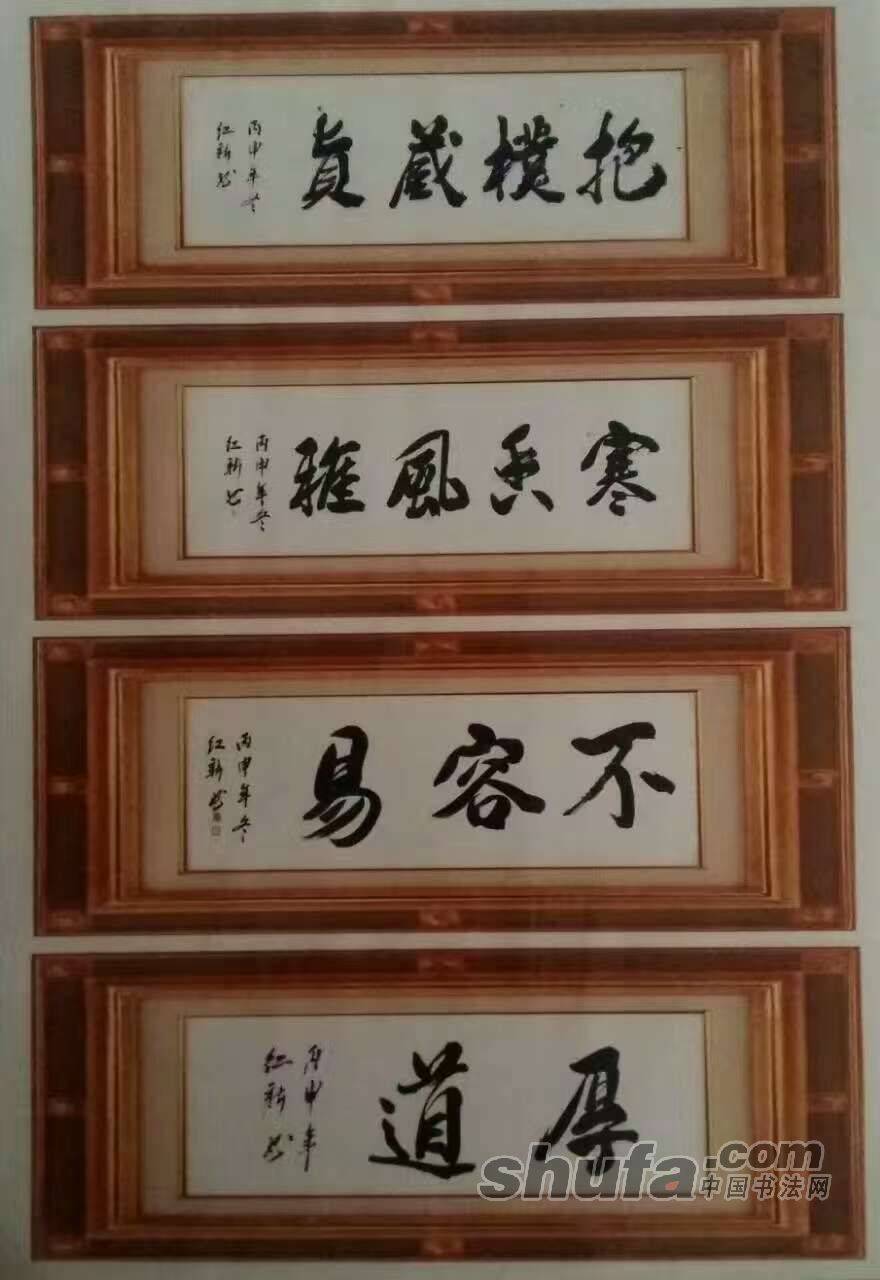 抱樸蔵貞
丙申年冬
红新书
寒香風雅
丙申年冬
红新书
不容易
丙申年冬
红新书
厚道
丙申年
红新书
shufa.com
中国书法网